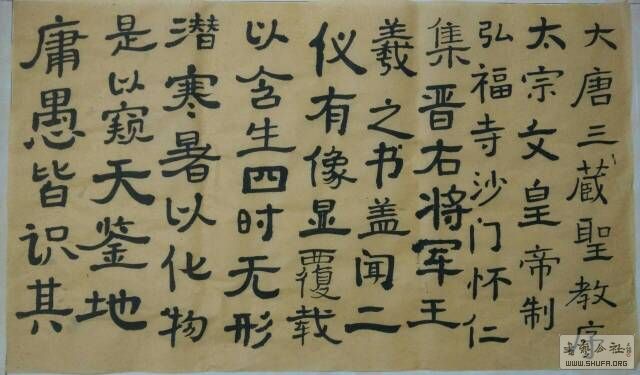 大唐三藏聖教序
太宗文皇帝制
弘福寺沙门怀仁
集晋右将军王
羲之书盖闻二
仪有像显覆载
以含生四时无形
潜寒暑以化物
是以窥天鉴地
庸愚皆识其
WWW.SHUFA.ORG